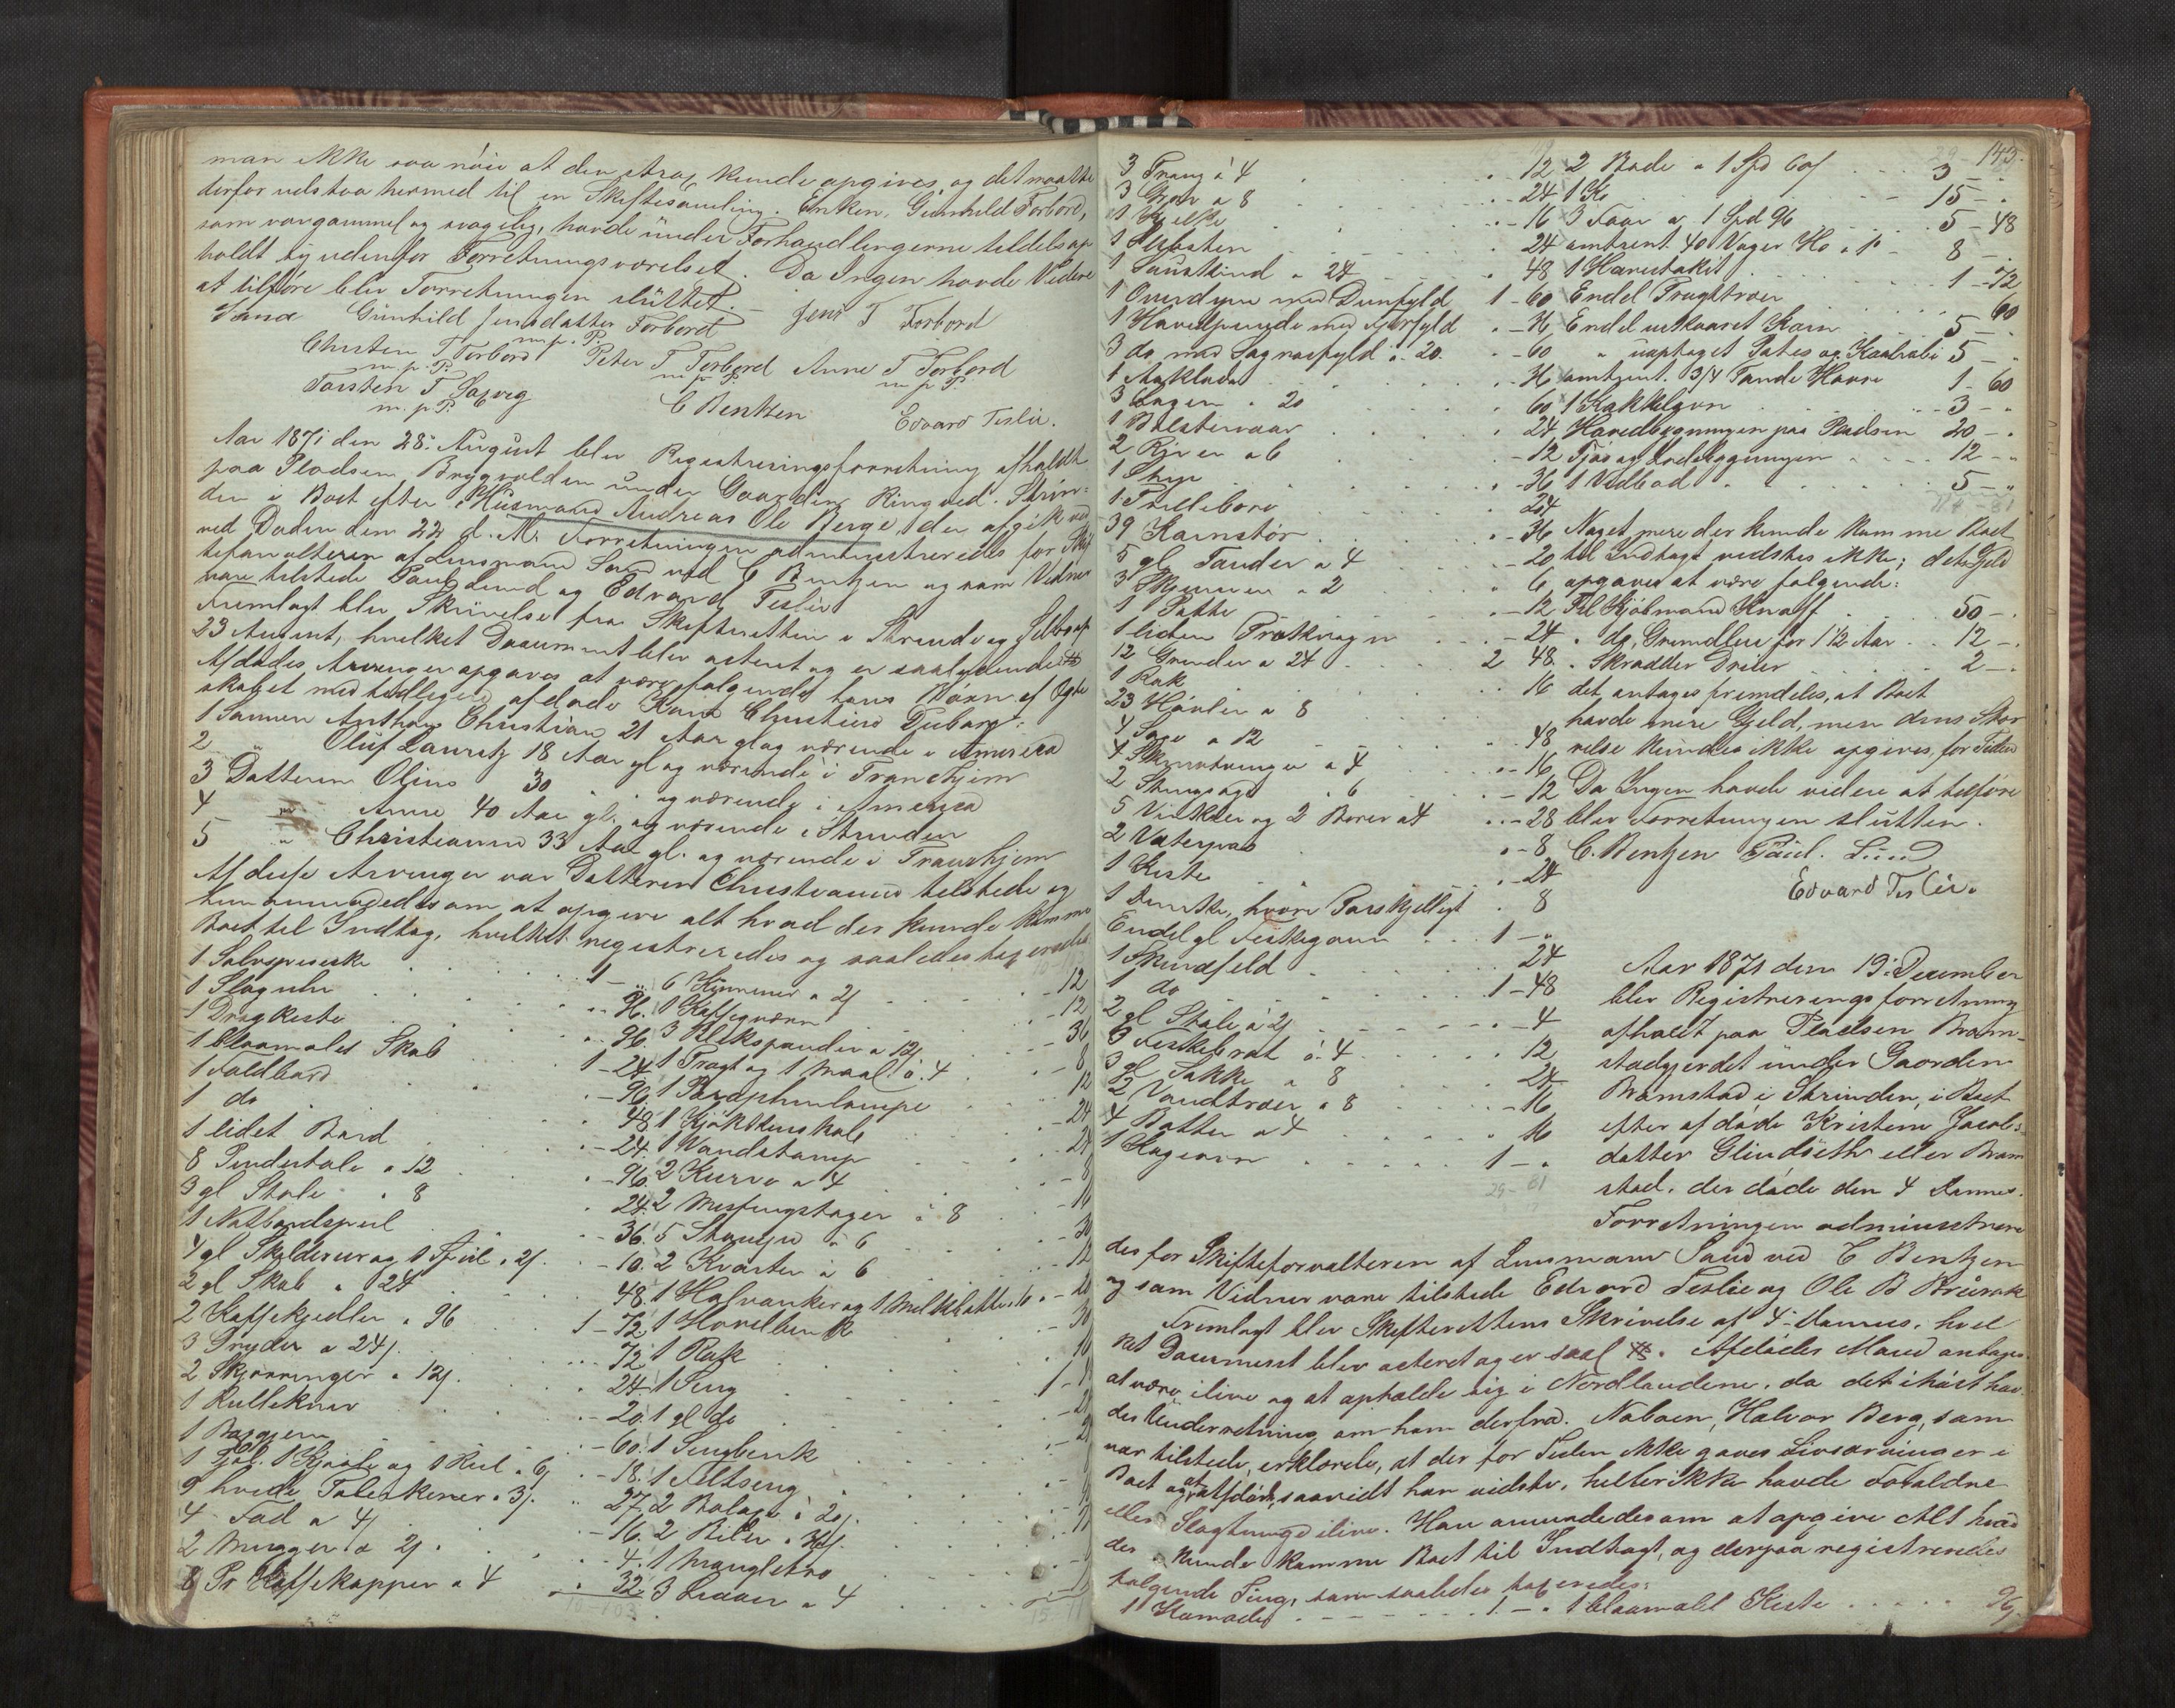 man ikke saa nøie at den strax kunde opgives, og det maatte
derfor udstaa hermed til en Skiftesamling. Enken, Gunhild Forbord,
som var gammel og svagelig, havde under Forhandlingerne tildels op
holdt sig udenfor Forretningsværelset. Da Ingen havde Videre
at tilføre blev Forretningen sluttet.
Sand Gunhild Jensdatter Forbord Jens T Forbord
m. p. P.
Christen T Forbord Peter T Forbord Anne T Forbord
m. p. P. m p P. m p P
Torsten T Saxvig C Bentzen Edvard Teslie.
m. p. P
Aar 1871 den 28. August blev Registreringsforretning afholdt
paa Pladsen Brygvolden under Gaarden Ringved Strin-
den i Boet efter Husmand Andreas Ole Berge, der afgik ved
ved Døden den 22 d. M. Forretningen administreredes for Skif
teforvalteren af Lensmand Sand ved C Bentzen og som Vidner
vare tilstede Paul Lund og Edvard Teslie
Fremlagt blev Skrivelse fra Skifteretten i Strinde og Selbo af
23 August, hvilket Document blev acteret og er saalydende
Afdødes Arvinger opgaves at være følgende hans Børn af Ægte
skabet med tidligere afdøde Kone Christine
1 Sønnen Anthon Christian 21 Aar gl og værende i Amerika
2 " Oluf Lauritz 18 Aar gl og værende i Trondhjem
3 Datteren Oline 30 " " og værende i Amerika
4 " Anne 40 Aar gl. og værende i Strinden
5 " Christianne 33 Aar gl. og værende i Trondhjem
Af disse Arvinger var Datteren Christianne tilstede og
hun anmodedes om at opgive alt hvad der kunde komme
Boet til Indtægt, hvilket registreredes og saaledes taxeredes
1 Sølvspiseske 1 - "
1 Slaguhr " 96.
1 Dragkiste " 96.
1 blaamalet Skab 1 - 24
1 Foldbord - 96
1 do 48
1 lidet Bord - 24.
8 Pindestole a 12 - 96.
3 gl Stole a 8 24.
1 Natbordspeil - 36.
4 gl Skilderier og 1 Speil a 2 - 10.
2 gl Skab a 24 48.
2 Kaffekjedler a 96 1 - 72
3 Gryder a 24 72
2 Skjørringer a 12 24
1 20.
1 - 60.
1 1 og 1 a 6 - 18.
9 hvide Talerkener a 3 27.
4 Fad a 4 - 16.
2 Mugger a 2 - 4.
8 Pr Kaffekopper a 4 32.
6 a 2 - 12
1 Kaffeqværn - 12
3 Blikspander a 12 36
1 Tragt og 1 Maal a 4 8
1 Parafinlampe 12
1 Kjøkkenskab 24
1 Vandstamp 24
2 Kurve a 4 - 8
2 Messingstager a 8 - 16
5 a 6 - 30
2 Kvarter a 6 - 12
1 Halvanker og 1 - 20
1 Høvelbenk - 30
1 Rok 16
1 Seng 1 -
1 gl do
1 Sengbenk
1 Feltseng
2 a 20
2 a 36
1 Mangletræ
3 Leiaer a 4
143.
3 Traug a 4 12
3 a 8 " - 24
1 " - 16
1 24
1 Saueskind a 24 48
1 Overdyne med Dunfyld 1 - 60
1 Hovedpude med Fjerfyld " - 36
3 do med a 20 " - 60
1 Aaklæde " - 36
3 Lagen a 20 60
1 Bolstervaar 24
2 River a 6 - 12
1 " - 36
1 24
39 Kornstør " - 36
5 gl Tønder a 4 - 20
3 a 2 6
1 Bøtte - 12
1 liden - 24
12 a 24 2 48
1 Rok 16
23 Høvler a 8
4 Sage a 12 48
4 a 4 - 16
2 a 6 - 12
5 Vinkler og 2 Borer a 4 - 28
2 Vaterpas - 8
1 Kiste - 24
1 hvori Forskjelligt 8
Endel gl Fiskegarn 1 - "
1 Skindfeld 24
1 do 1 - 48
2 gl Stole a 2 " - 4
3 a 4 12
3 gl Sække a 8 24
2 Vandtræer a 8 - 16
4 Bøtter a 4 16
1 1 - "
29 - 81
2 Bøde a 1 Spd 60 3 - "
1 Ko 15 - "
3 Faar a 1 Spd 96 5 - 48
omtrent 40 Voger Hø a 8 -
1 1 - 72
Endel 60
Endel uskaaret Korn 5 - "
" uoptaget Potes og Kaalrabi 5 - "
omtrent 3/4 Tønde Havre 1 - 60
1 Kakkelovn 3 - "
Hovedbygningen paa Pladsen 20 - "
Fjøs og Ladebygningen 12 - "
1 Vedbod 5 - "
Noget mere der kunde komme Boet
til Indtægt vidstes ikke; dets Gjeld
opgaves at være følgende:
Til Kjøbmand Knoff 50 - "
" do, Grundleie for 1 1/2 Aar 12 - "
" Skrædder 2 - "
det antages fremdeles, at Boet
havde mere Gjeld, men dens Stør
relse kundes ikke opgives, for Tiden
Da Ingen havde videre at tilføre
blev Forretningen sluttet.
C. Bentzen Paul. Lund
Edvard Teslie.
Aar 1871 den 19. December
blev Registreringsforretning
afholdt paa Pladsen Brøm-
stadgjerdet under Gaarden
Brømstad i Strinden, i Boet
efter afdøde Kristine Jacobs-
datter eller Brøm
stad, der døde den 4 dennes.
Forretningen administrere
des for Skifteforvalteren af Lensmand Sand ved C Bentzen
og som Vidner vare tilstede Edvard Teslie og Ole B
Fremlagt blev Skifterettens Skrivelse af 4 dennes, hvil
ket Document blev acteret og er saal Afdødes Mand antages
at være ilive og at opholde sig i Nordlandene, da det ihøst hav
des Underretning om ham derfra. Naboen, Halvor Berg, som
var tilstede, erklærede, at der for Tiden ikke gaves Livsarvinger i
Boet og at Afdøde, saavidt han vidste, heller ikke havde Forældre
eller Slægtninge ilive. Han anmodedes om at opgive Alt hvad
der kunde komme Boet til Indtægt, og derpaa registreredes
følgende Ting, som saaledes taxeredes:
1 Komode 1 - " 1 blaamalt Kiste 96